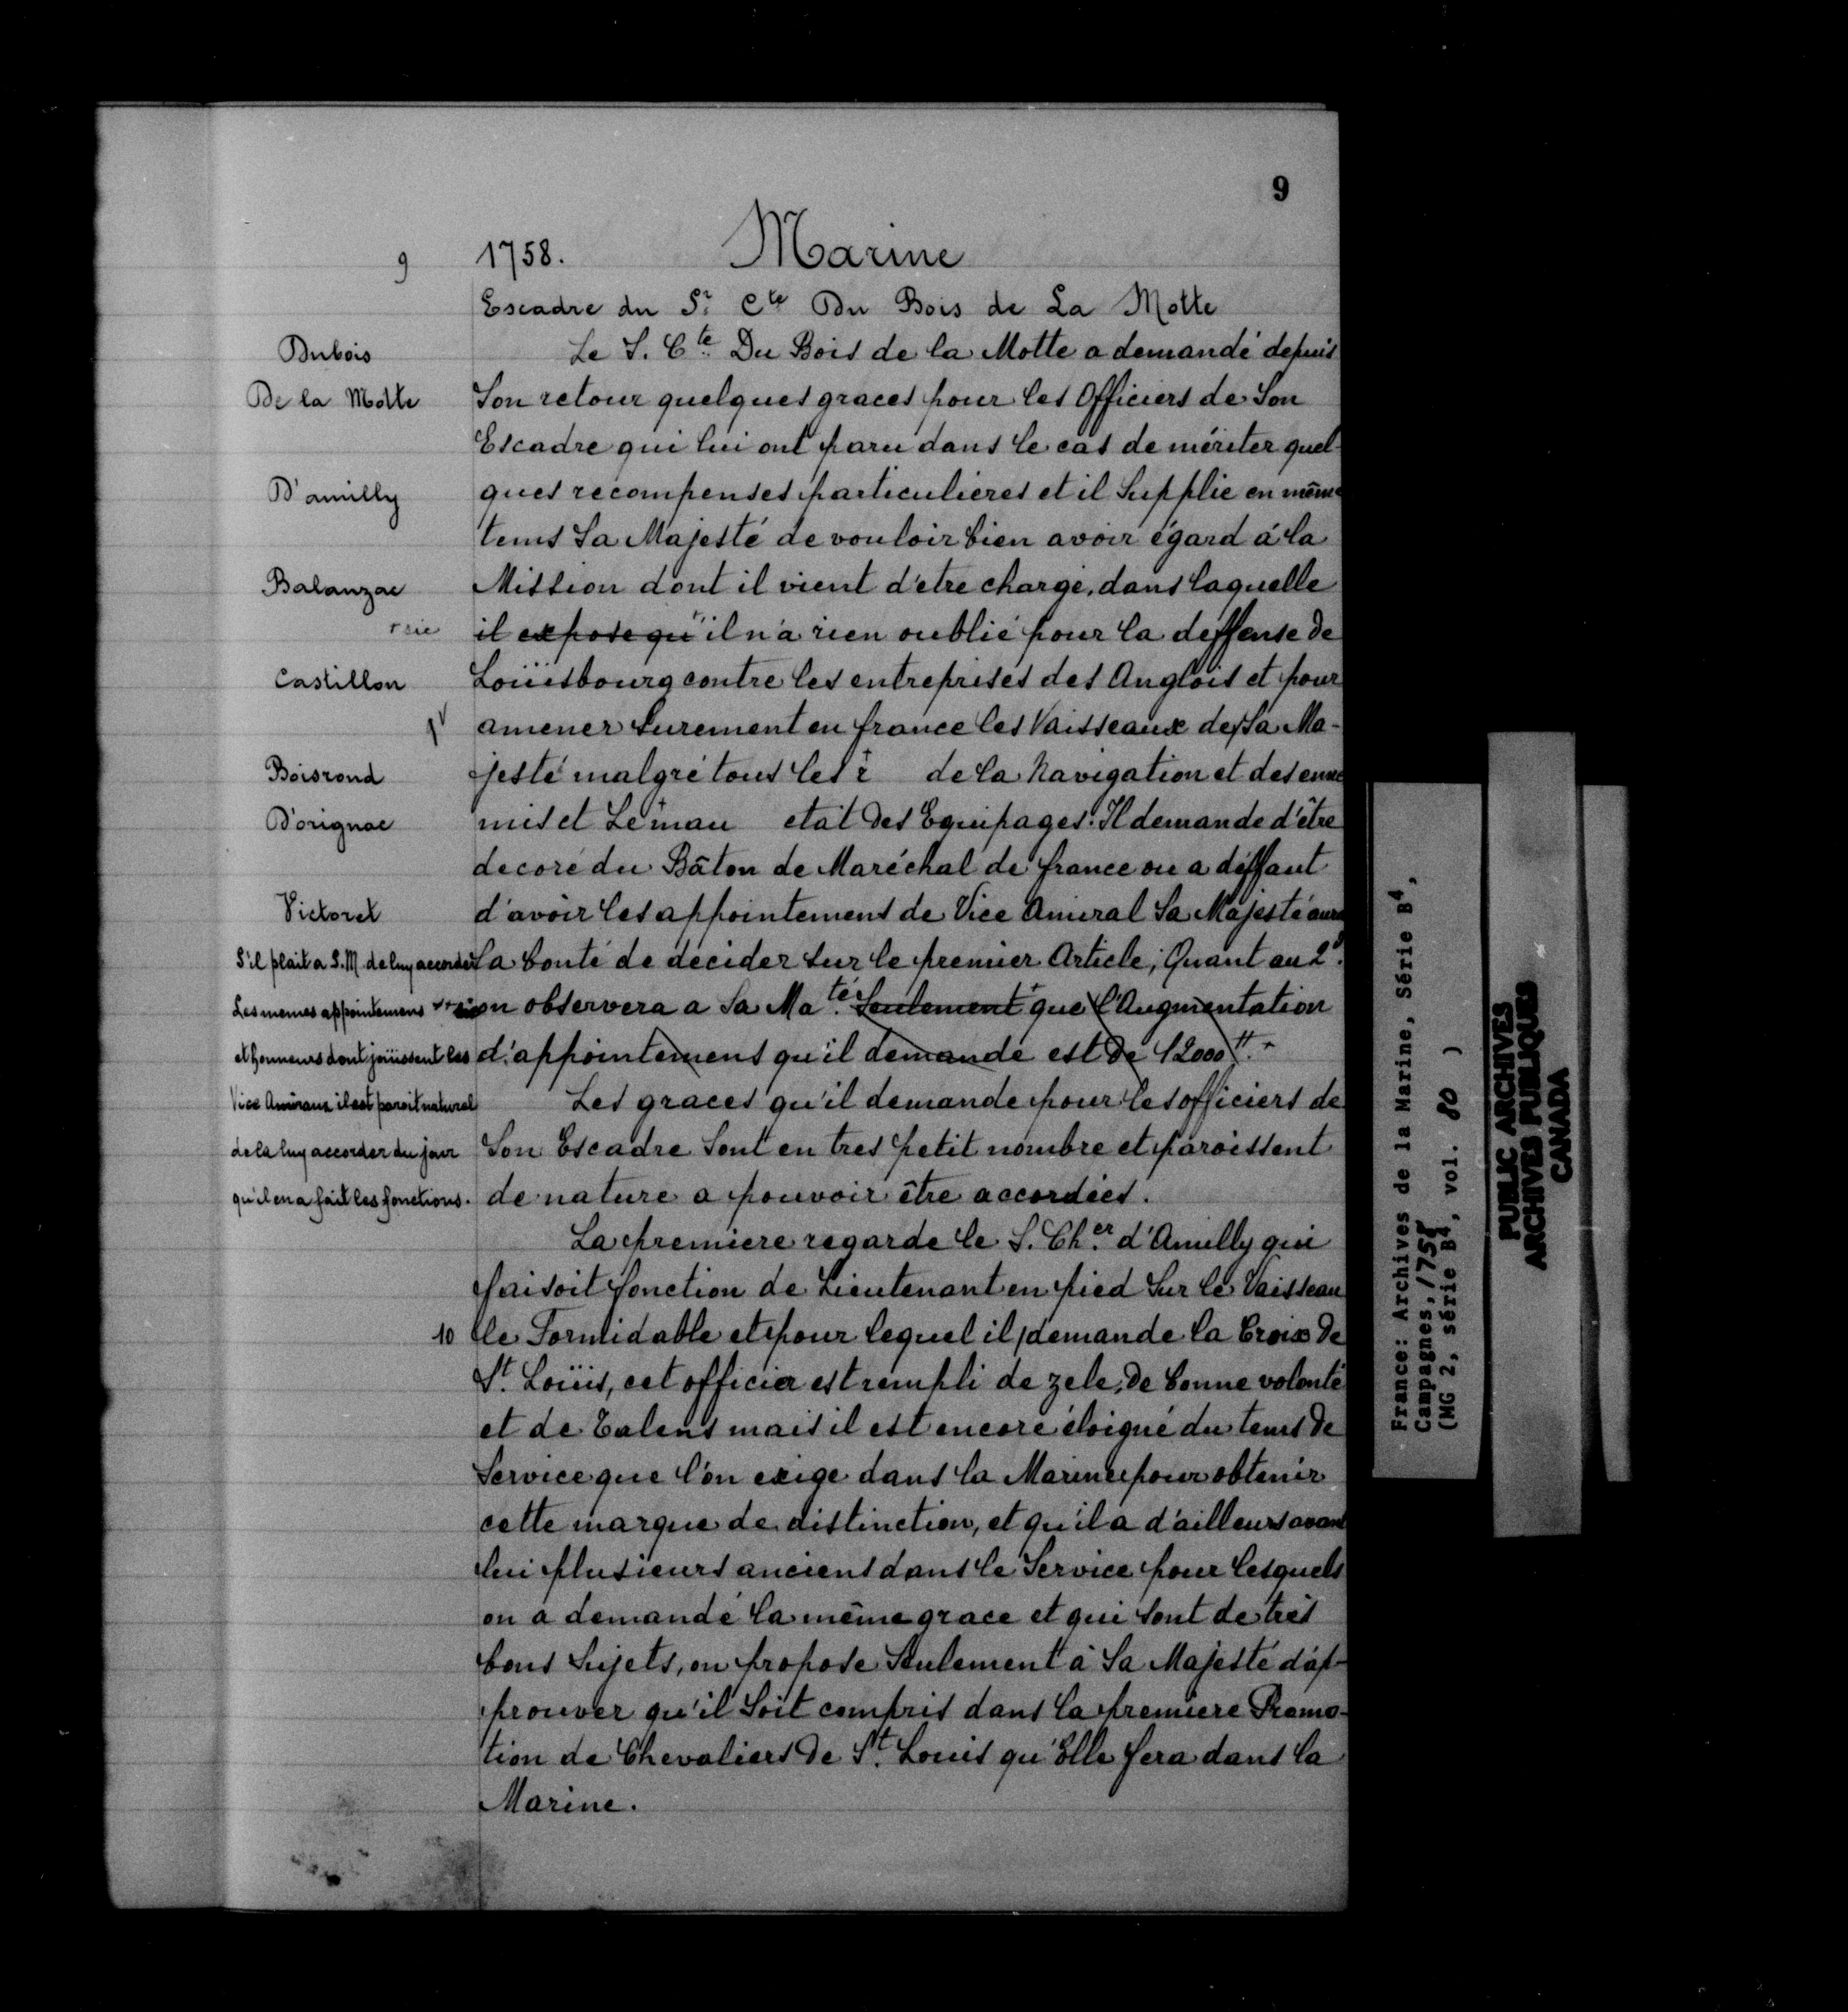 9
9
1758. Marine
Escadre du Sr. Cte Du Bois de La Motte
Dubois
De la Motte
D'amilly
Balanzac
Castillon
Boisrond
D'orignac
Victoret
S'il plait a S.M. de luy accorder
Les memes appointemens
et honneurs dont joüissent les
Vice Amiraux il est paroit natural
de la luy accorder du jour
qu'il en a fait les fonctions.
Le S. Cte. Du Bois de la Motte a demandé depuis
Son retour quelques graces pour les Officiers de Son
Escadre qui lui ont paru dans le cas de mériter quel-
ques recompenses particulières et il Supplie en même
tems Sa Majesté de vouloir bien avoir égard á la
Mission dont il vient d'etre chargé, dans laquelle
il expose qu'il n'a rien oublié pour la deffense de
Loüisbourg contre les entreprises des Anglois et pour
amener Surement en france les Vaisseaux de Sa Ma-
jesté malgré tous les r de la Navigation et des enne
mis et Le mau etat des Equipages. Il demande d'être
decoré du Bâton de Maréchal de france ou a deffaut
d'avoir les appointemens de Vice Amiral Sa Majesté aura
la bonté de decider Sur le premier Article; Quant au 2d.
on observera a Sa Maté. Seulement que l'Augmentation
d'appointemens qu'il demande est de 12000tt.
Les graces qu'il demande pour les officiers de
Son Escadre Sont en tres petit nombre et paroissent
de nature a pouvoir être accordées.
La premiere regarde le S. Cher. d'Amilly qui
faisoit fonction de Lieutenant en pied Sur le Vaisseau
10 le Formidable et pour lequel il demande la Croix de
St. Loüis, cet officier est rempli de zele, de bonne volonté
et de Talens mais il est encore éloigné du tems de
Service que l'on exige dans la Marine pour obtenir
cette marque de distinction, et qu'il a d'ailleurs avant
lui plusieurs anciens dans le Service pour lesquels
on a demandé la même grace et qui Sont de très
bons Sujets, on propose Seulement à Sa Majesté d'ap-
prouver qu'il Soit compris dans la premiere Promo-
tion de Chevaliers de St. Louis qu'Elle fera dans la
Marine.
France: Archives de la Marine, Série B4,
Campagnes, 1758
(MG 2, série B4, vol. 80 )
PUBLIC ARCHIVES
ARCHIVES PUBLIQUES
CANADA